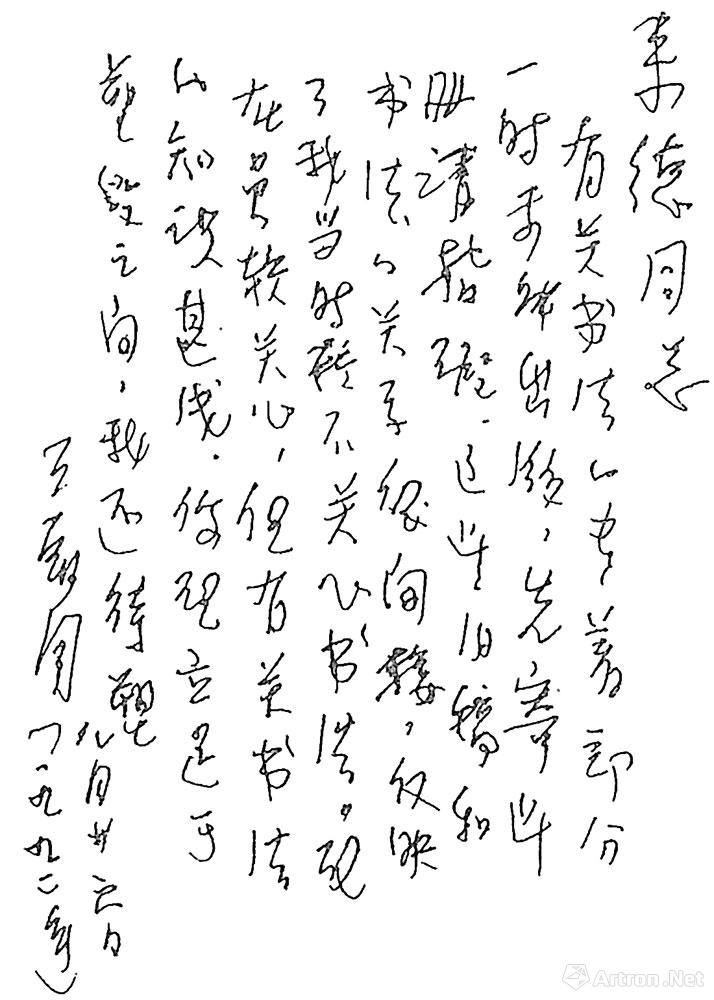 来德同志
有关书法的专著部分
一时未能出版，先寄近
册请指难.这些旧稿和
书法的关系很间接，反映
了我当时疑不关心书法。现
在虽较关心，但有关书法
的知识甚浅.你理应还于
望之间，我还待
王朝闻
八月廿六日
（一九九二年）
Artron.Net